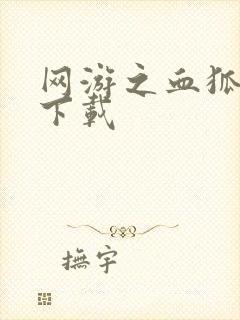 网游之血狐
下载
撫宇